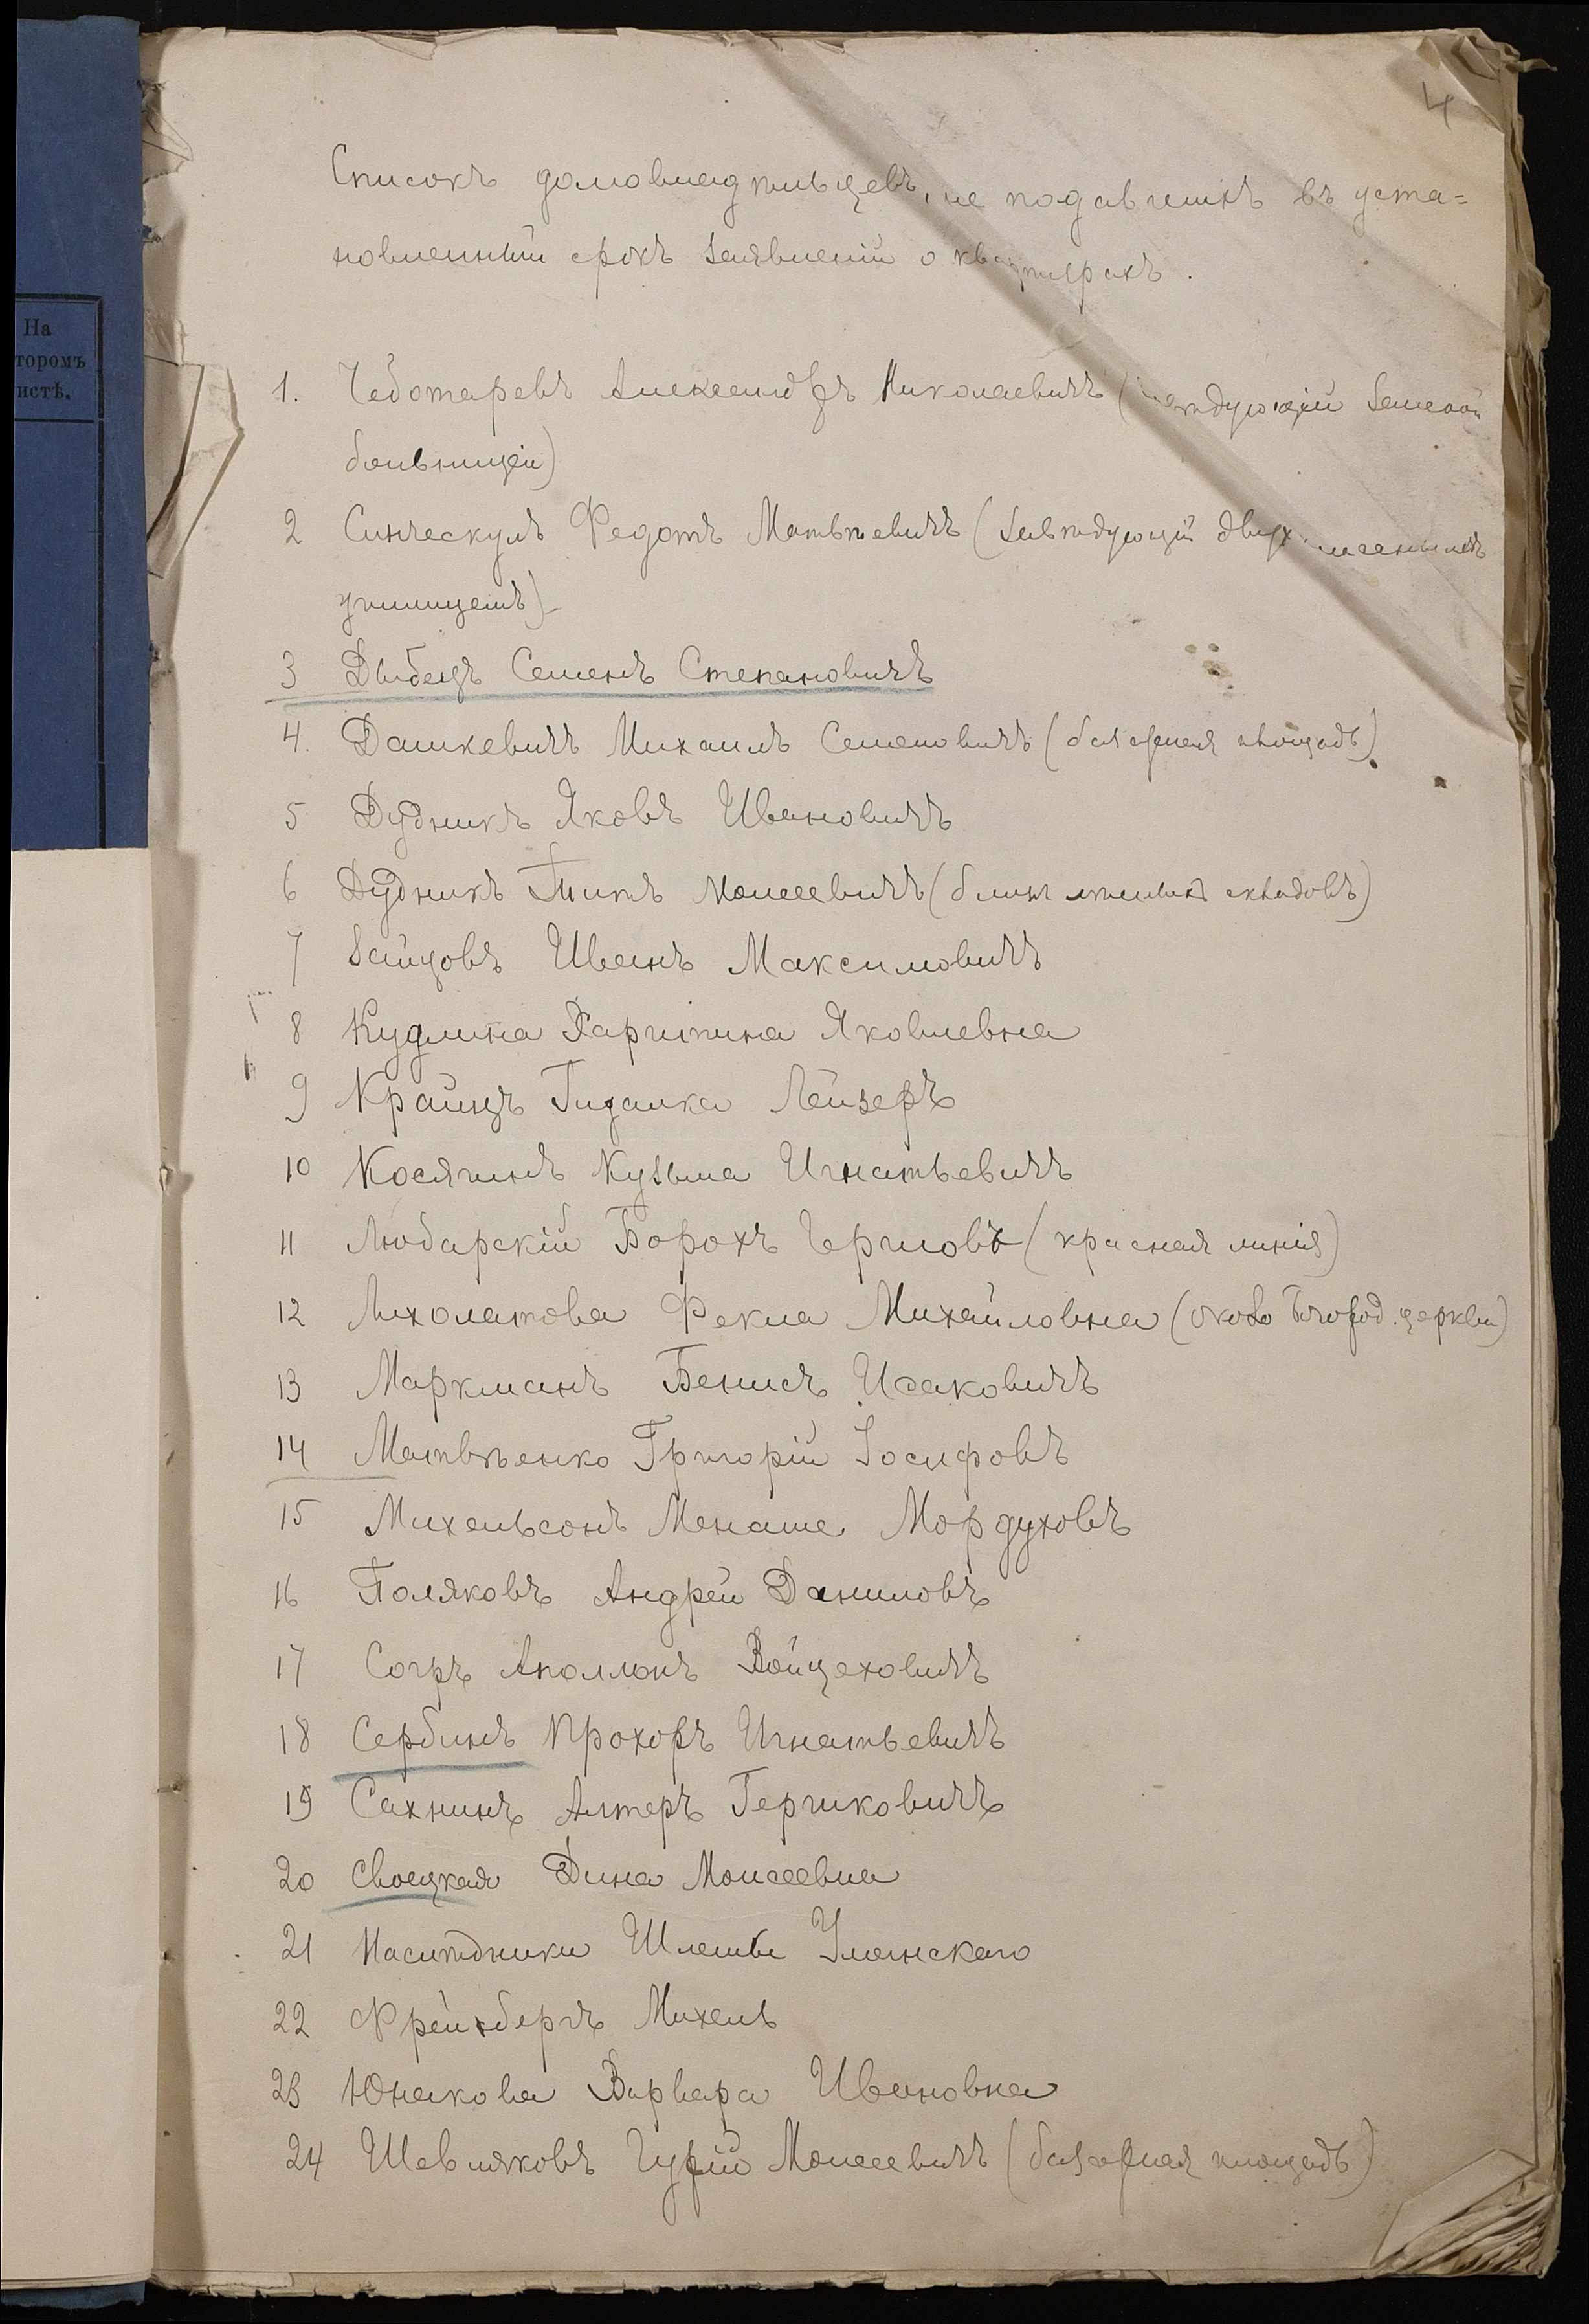 4
На
тором
истѣ.
Списокъ домовладѣльцевъ, не подавшихъ въ уста=
новленный срокъ заявленій о квартирахъ.
1. Чеботаревъ Александръ Николаевичъ (завѣдующій земской
больницей)
2 Синческулъ Федотъ Матвѣевичъ (завѣдующій двухклассным
училищемъ)
3 Дыбецъ Семенъ Степановичъ
4. Дашкевичъ Михаилъ Семеновичъ (базарная площадь)
5 Дудникъ Яковъ Ивановичъ
6 Дудникъ Титъ Моисеевичъ (близъ складовъ)
7 Зайцовъ Иванъ Максимовичъ
8 Кудлина Харитина Яковлевна
9 Крайнцъ Гидалка Лейзеръ
10 Косягинъ Кузьма Игнатьевичъ
11 Любарскій Борохъ Гершовъ (красная линія)
12 Лихолатова Фекла Михайловна (около церкви)
13 Маркманъ Бенисъ Исаковичъ
14 Матвѣенко Григорій Іосифовъ
15 Михельсонъ Менаше Мордуховъ
16 Поляковъ Андрей Даниловъ
17 Согръ Аполлонъ Войцеховичъ
18 Сербинъ Прохоръ Игнатьевичъ
19 Сахнинъ Алтеръ Гершковичъ
20 Своецкая Дина Моисеевна
21 Наслѣдники Шлемы Уманскаго
22 Фрейнбергъ Михель
23 Юнакова Варвара Ивановна
24 Шевляковъ Гурій Моисеевичъ (базарная площадь)